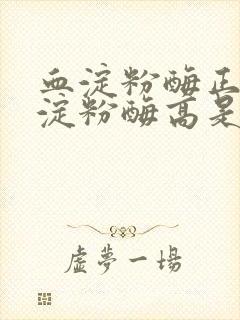 血淀粉酶正
淀粉酶高是
虚夢一場